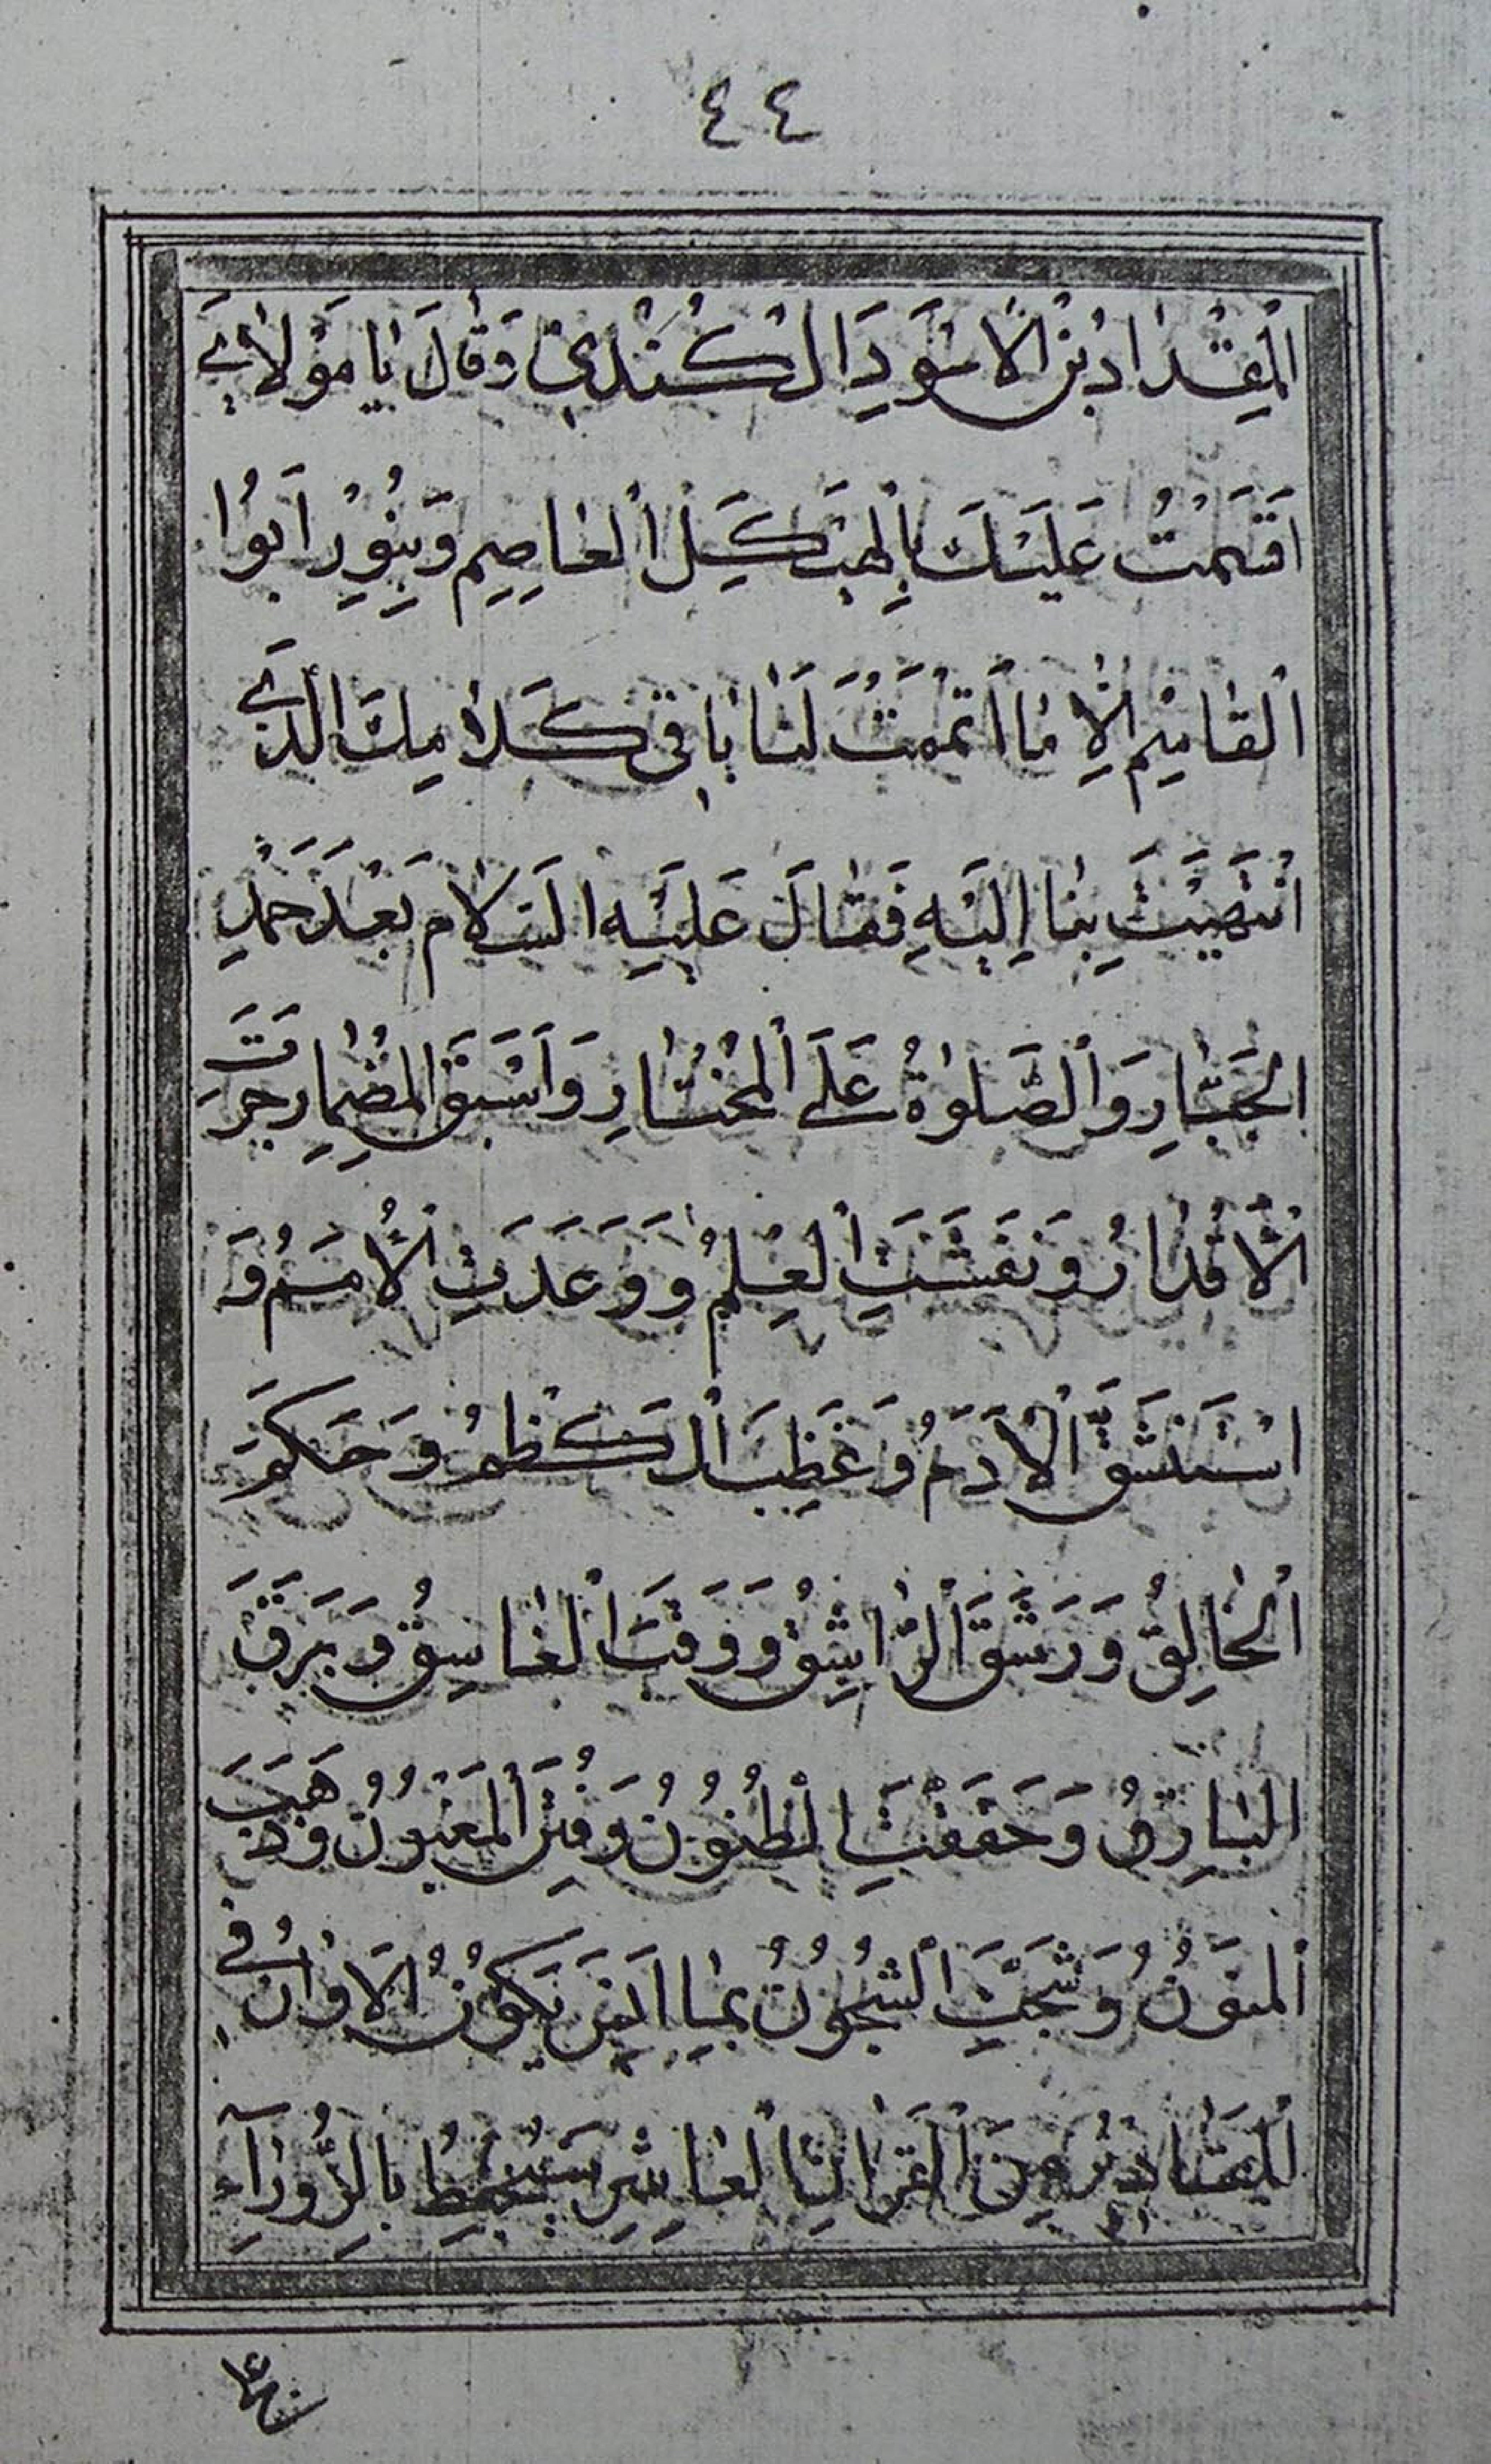 ٤٤
اَلْمِقْدٰادُ بْنُ الْاَسْوَدِ الْكُنْدِيِّ وَقٰالَ يٰا مَوْلاٰيَ
اَقْسَمْتُ عَلَيْكَ بِالْهَيْكَلِ الْعٰاصِمِ وَبِنُورِ اَبُوا
الْقٰاسِمِ اِلاّٰ مٰا اَتْمَمْتَ لَنٰا بٰاقِي كَلاٰمِكَ الَّذِي
انْتَهَيْتَ بِنٰا اِلَيْهِ فَقٰالَ عَلَيْهِ السَّلاٰم بَعْدَ حَمْدِ
الْجَبّٰارِ وَالصَّلوٰةُ عَلَى الْمُخْتٰارِ وَاَسْبَقَ الْمِضْمٰارِ جَرَتِ
الْاَقْدٰارُ وَنَفَشَتِ الْعِلْمُ وَوَعَدَتِ الْاُمَمُ وَ
اسْتَنْشَقَ الْاَدَمُ وَغَظِبَ الْكَظْمُ وَحَكَمَ
الْخٰالِقُ وَرَشَقَ الرّٰاشِقُ وَوَقَبَ الْغٰاسِقُ وَبَرَقَ
الْبٰارِقُ وَحَقَقَتِ الْظُنُونُ وَفُتِنَ الْمَغْبُونُ وَذَهَبَ
الْمَنُونُ وَشَجَتِ الشُّجُونُ بِمٰا اَيْنَ يَكُونُ الْاَوٰانُ فِي
بِالزَّوْرٰآءِ